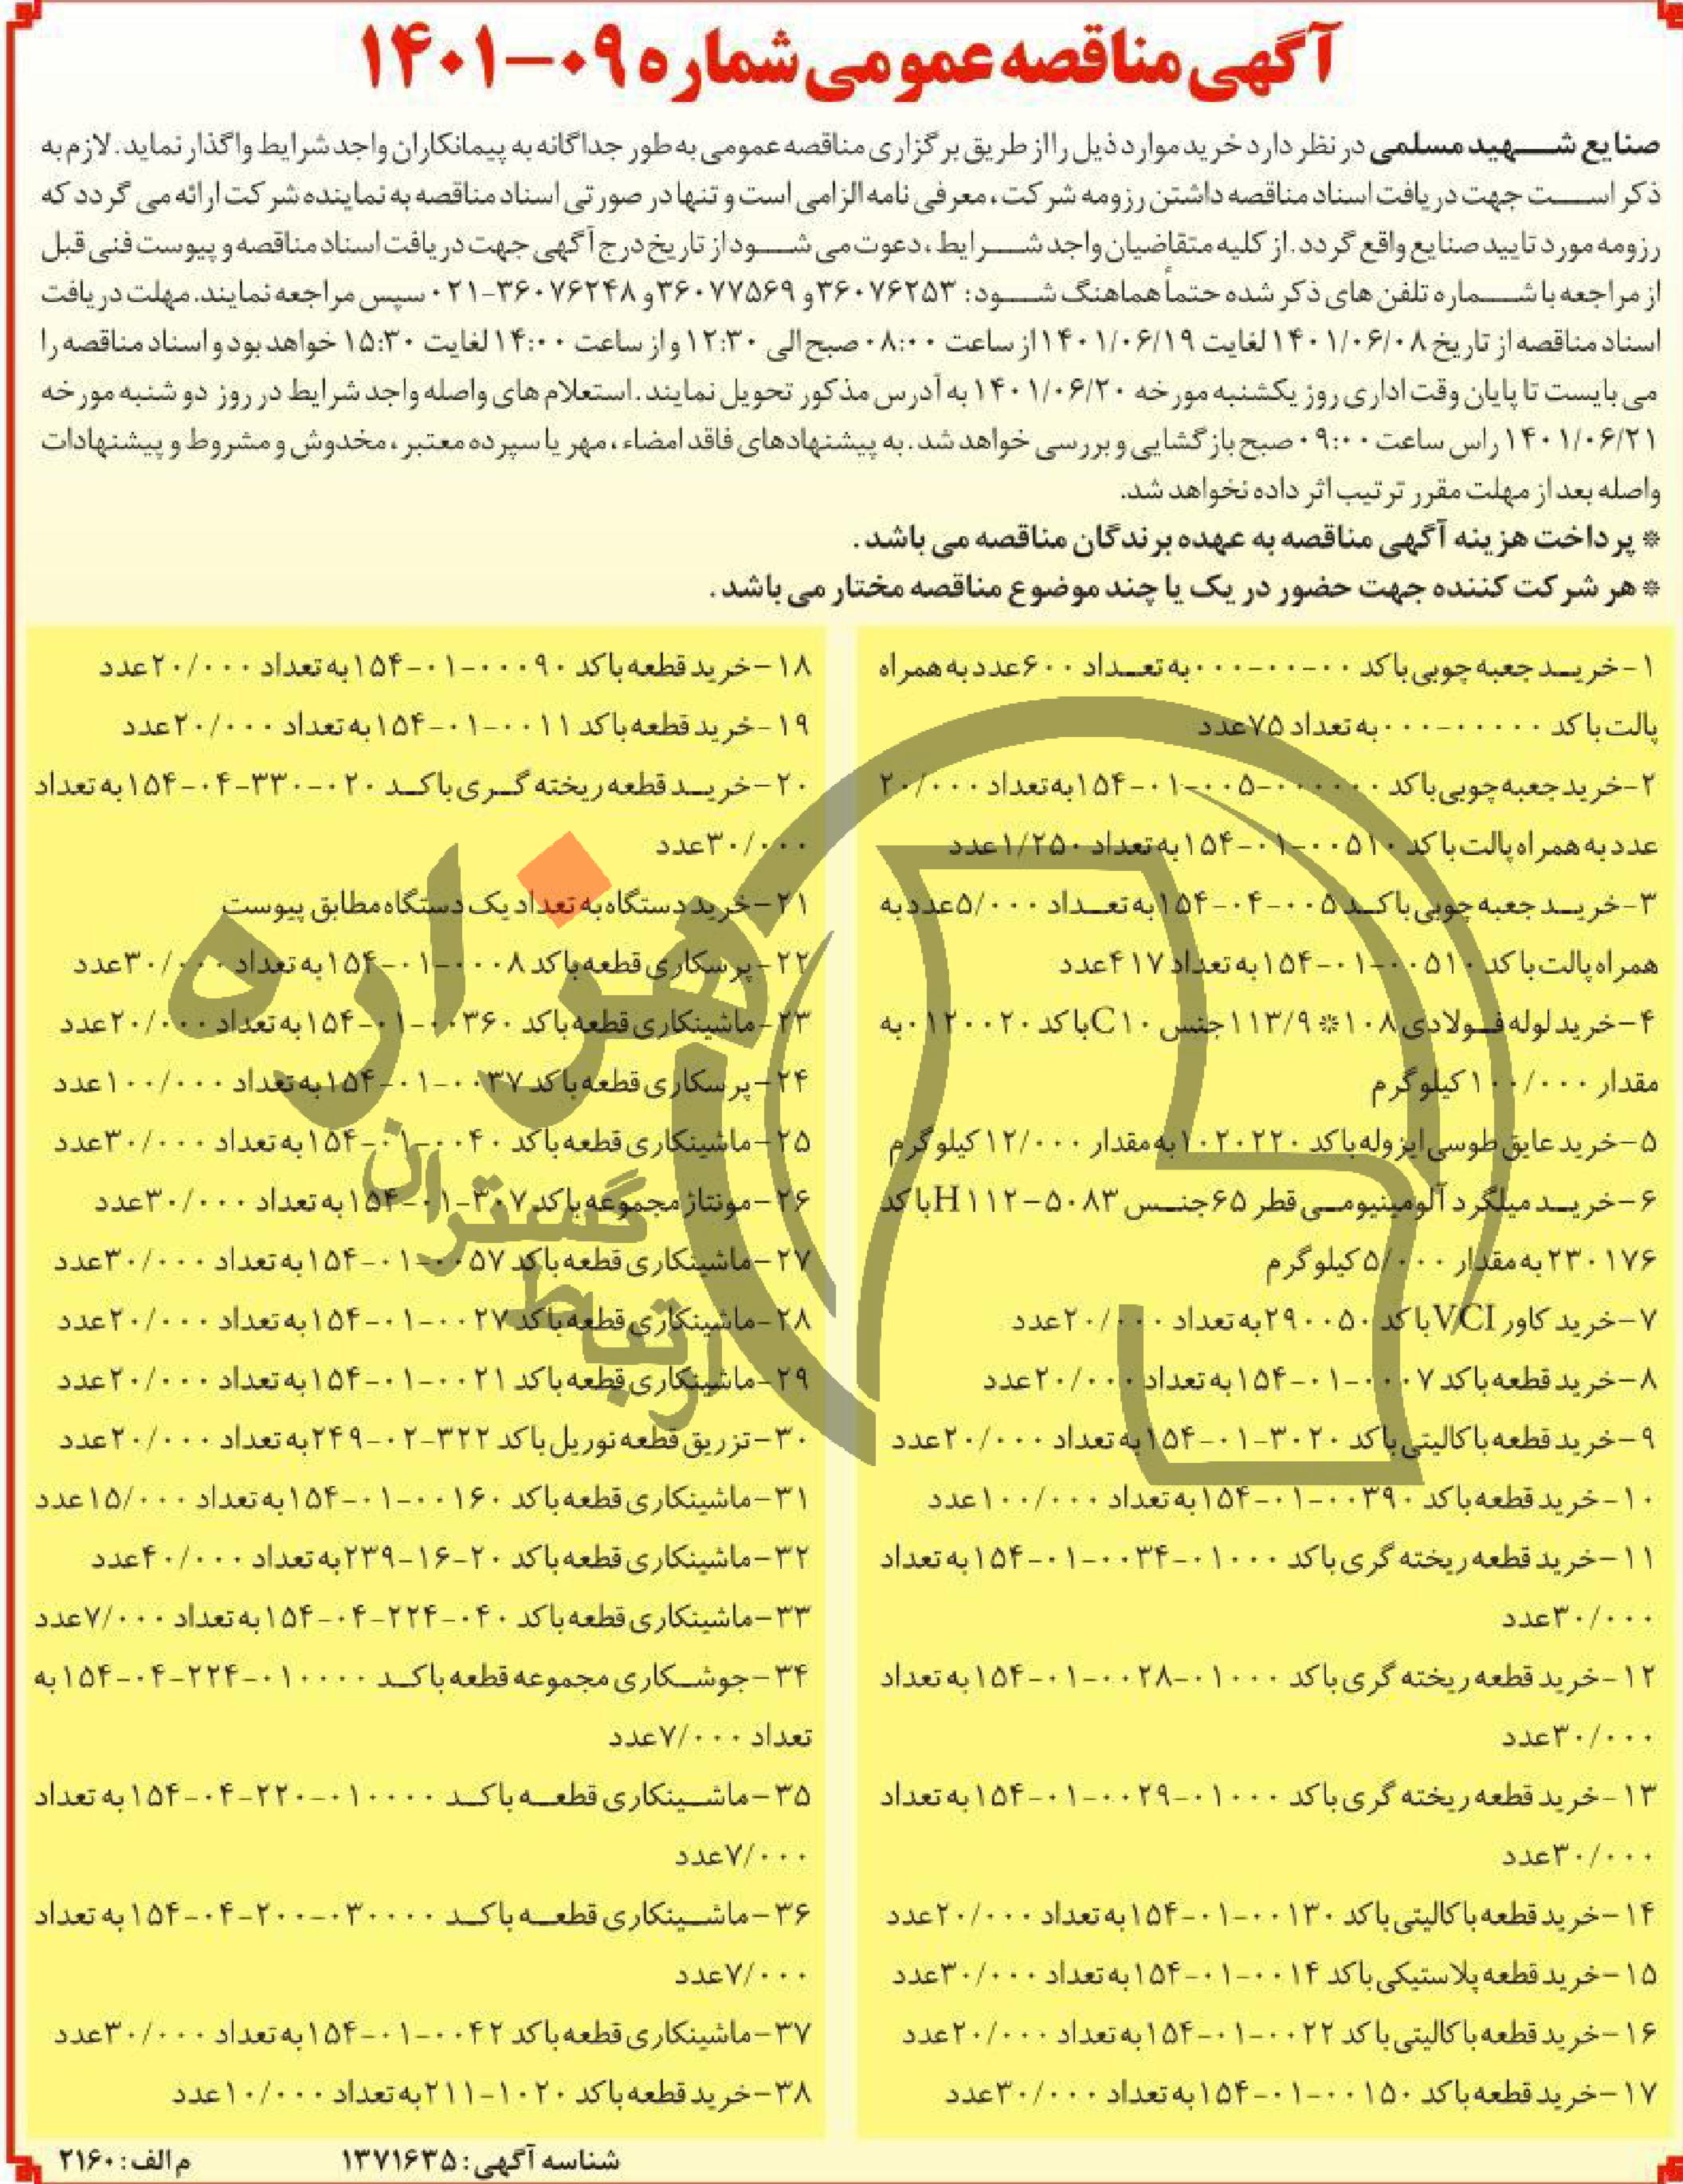 آگهی مناقصه عمومی شماره ۰۹-۱۴۰۱
صنایع شهید مسلمی در نظر دارد خرید موارد ذیل را از طریق برگزاری مناقصه عمومی به طور جداگانه به پیمانکاران واجد شرایط واگذار نماید. لازم به
ذکر است جهت دریافت اسناد مناقصه داشتن رزومه شرکت، معرفی نامه الزامی است و تنها در صورتی اسناد مناقصه به نماینده شرکت ارائه می گردد که
رزومه مورد تایید صنایع واقع گردد. از کلیه متقاضیان واجد شرایط، دعوت می شود از تاریخ درج آگهی جهت دریافت اسناد مناقصه و پیوست فنی قبل
از مراجعه با شماره تلفن های ذکر شده حتماً هماهنگ شود: ۳۶۰۷۶۲۵۳ و ۳۶۰۷۷۵۶۹ و ۳۶۰۷۶۲۴۸-۰۲۱ سپس مراجعه نمایند. مهلت دریافت
اسناد مناقصه از تاریخ ۱۴۰۱/۰۶/۰۸ لغایت ۱۴۰۱/۰۶/۱۹ از ساعت ۰۸:۰۰ صبح الی ۱۲:۳۰ و از ساعت ۱۴:۰۰ لغایت ۱۵:۳۰ خواهد بود و اسناد مناقصه را
می بایست تا پایان وقت اداری روز یکشنبه مورخه ۱۴۰۱/۰۶/۲۰ به آدرس مذکور تحویل نمایند. استعلام های واصله واجد شرایط در روز دو شنبه مورخه
۱۴۰۱/۰۶/۲۱ راس ساعت ۰۹:۰۰ صبح بازگشایی و بررسی خواهد شد. به پیشنهادهای فاقد امضاء، مهر یا سپرده معتبر، مخدوش و مشروط و پیشنهادات
واصله بعد از مهلت مقرر ترتیب اثر داده نخواهد شد.
* پرداخت هزینه آگهی مناقصه به عهده برندگان مناقصه می باشد.
* هر شرکت کننده جهت حضور در یک یا چند موضوع مناقصه مختار می باشد.
۱-خرید جعبه چوبی با کد ۰۰-۰۰-۰۰۰ به تعداد ۶۰۰ عدد به همراه
پالت با کد ۰۰۰۰۰-۰۰۰ به تعداد ۷۵ عدد
۲-خرید جعبه چوبی با کد ۰۰۰۰۰۰-۰۰۵-۰۱-۱۵۴ به تعداد ۲۰/۰۰۰
عدد به همراه پالت با کد ۰۰۵۱۰-۰۱-۱۵۴ به تعداد ۱/۲۵۰ عدد
۳-خرید جعبه چوبی با کد ۰۰۵-۰۴-۱۵۴ به تعداد ۵/۰۰۰ عدد به
همراه پالت با کد ۰۰۵۱۰-۰۱-۱۵۴ به تعداد ۴۱۷ عدد
۴-خرید لوله فولادی ۱۰۸*۱۱۳/۹ جنس C۱۰ با کد ۰۱۲۰۰۲۰ به
مقدار ۱۰۰/۰۰۰ کیلوگرم
۵-خرید عایق طوسی ایزوله با کد ۱۰۲۰۲۲۰ به مقدار ۱۲/۰۰۰ کیلوگرم
۶-خرید میلگرد آلومینیومی قطر ۶۵ جنس ۵۰۸۳-H۱۱۲ با کد
۲۳۰۱۷۶ به مقدار ۵/۰۰۰ کیلوگرم
۷-خرید کاور VCI با کد ۲۹۰۰۵۰ به تعداد ۲۰/۰۰۰ عدد
۸-خرید قطعه با کد ۰۰۰۷-۰۱-۱۵۴ به تعداد ۲۰/۰۰۰ عدد
۹-خرید قطعه باکالیتی با کد ۳۰۲۰-۰۱-۱۵۴ به تعداد ۲۰/۰۰۰ عدد
۱۰-خرید قطعه با کد ۰۰۳۹۰-۰۱-۱۵۴ به تعداد ۱۰۰/۰۰۰ عدد
۱۱-خرید قطعه ریخته گری با کد ۰۱۰۰۰-۰۰۳۴-۰۱-۱۵۴ به تعداد
۳۰/۰۰۰ عدد
۱۲-خرید قطعه ریخته گری با کد ۰۱۰۰۰-۰۰۲۸-۰۱-۱۵۴ به تعداد
۳۰/۰۰۰ عدد
۱۳-خرید قطعه ریخته گری با کد ۰۱۰۰۰-۰۰۲۹-۰۱-۱۵۴ به تعداد
۳۰/۰۰۰ عدد
۱۴-خرید قطعه باکالیتی با کد ۰۰۱۳۰-۰۱-۱۵۴ به تعداد ۲۰/۰۰۰ عدد
۱۵-خرید قطعه پلاستیکی با کد ۰۰۱۴-۰۱-۱۵۴ به تعداد ۳۰/۰۰۰ عدد
۱۶-خرید قطعه باکالیتی با کد ۰۰۲۲-۰۱-۱۵۴ به تعداد ۲۰/۰۰۰ عدد
۱۷-خرید قطعه با کد ۰۰۱۵۰-۰۱-۱۵۴ به تعداد ۳۰/۰۰۰ عدد
۱۸-خرید قطعه با کد ۰۰۰۹۰-۰۱-۱۵۴ به تعداد ۲۰/۰۰۰ عدد
۱۹-خرید قطعه با کد ۰۰۱۱-۰۱-۱۵۴ به تعداد ۲۰/۰۰۰ عدد
۲۰-خرید قطعه ریخته گری با کد ۰۲۰-۳۳۰-۰۴-۱۵۴ به تعداد
۳۰/۰۰۰ عدد
۲۱-خرید دستگاه به تعداد یک دستگاه مطابق پیوست
۲۲-پرسکاری قطعه با کد ۰۰۰۸-۰۱-۱۵۴ به تعداد ۳۰/۰۰۰ عدد
۲۳-ماشینکاری قطعه با کد ۰۰۳۶۰-۰۱-۱۵۴ به تعداد ۲۰/۰۰۰ عدد
۲۴-پرسکاری قطعه با کد ۰۰۳۷-۰۱-۱۵۴ به تعداد ۱۰۰/۰۰۰ عدد
۲۵-ماشینکاری قطعه با کد ۰۰۴۰-۰۱-۱۵۴ به تعداد ۳۰/۰۰۰ عدد
۲۶-مونتاژ مجموعه با کد ۳۰۷-۰۱-۱۵۴ به تعداد ۳۰/۰۰۰ عدد
۲۷-ماشینکاری قطعه با کد ۰۰۵۷-۰۱-۱۵۴ به تعداد ۳۰/۰۰۰ عدد
۲۸-ماشینکاری قطعه با کد ۰۰۲۷-۰۱-۱۵۴ به تعداد ۲۰/۰۰۰ عدد
۲۹-ماشینکاری قطعه با کد ۰۰۲۱-۰۱-۱۵۴ به تعداد ۲۰/۰۰۰ عدد
۳۰-تزریق قطعه نوریل با کد ۳۲۲-۰۲-۲۴۹ به تعداد ۲۰/۰۰۰ عدد
۳۱-ماشینکاری قطعه با کد ۰۰۱۶۰-۰۱-۱۵۴ به تعداد ۱۵/۰۰۰ عدد
۳۲-ماشینکاری قطعه با کد ۲۰-۱۶-۲۳۹ به تعداد ۴۰/۰۰۰ عدد
۳۳-ماشینکاری قطعه با کد ۰۴۰-۲۲۴-۰۴-۱۵۴ به تعداد ۷/۰۰۰ عدد
۳۴-جوشکاری مجموعه قطعه با کد ۰۱۰۰۰۰-۲۲۴-۰۴-۱۵۴ به
تعداد ۷/۰۰۰ عدد
۳۵-ماشینکاری قطعه با کد ۰۱۰۰۰۰-۲۲۰-۰۴-۱۵۴ به تعداد
۷/۰۰۰ عدد
۳۶-ماشینکاری قطعه با کد ۰۳۰۰۰۰-۲۰۰-۰۴-۱۵۴ به تعداد
۷/۰۰۰ عدد
۳۷-ماشینکاری قطعه با کد ۰۰۴۲-۰۱-۱۵۴ به تعداد ۳۰/۰۰۰ عدد
۳۸-خرید قطعه با کد ۱۰۲۰-۲۱۱ به تعداد ۱۰/۰۰۰ عدد
هزاره
ارتباط گستران
شناسه آگهی: ۱۳۷۱۶۳۵
م الف: ۲۱۶۰